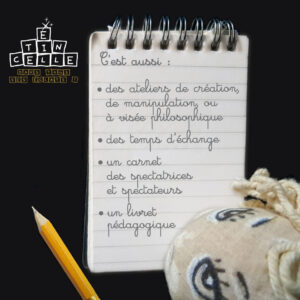 É
TIN
CELLE
C'est aussi :
• des ateliers de création,
de manipulation, ou
à visée philosophique
• des temps d'échange
• un carnet
des spectatrices
et spectateurs
• un livret
pédagogique